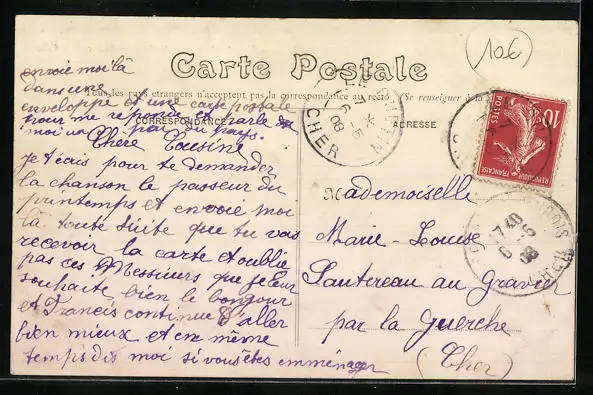 (10€)
Carte Postale
Tous les pays étrangers n'acceptent pas la correspondance au recto (Se renseigner à la
CORRESPONDANCE
ADRESSE
envoie moi là
dans une
enveloppe et une carte postale
pour me repondre et parle
moi un par du pays.
Chère Cousine
je técris pour te demander
la chanson le passeur du
printemps et envoie moi
là toute suite que tu vas
recevoir la carte et oublie
pas ces Messieurs que je leur
souhaite bien le bonjour
et Francis continue d'aller
bien mieux et en même
temps dis moi si vous êtes emménager
Mademoiselle
Marie-Louise
Sautereau au Gravier
par la Guerche
(Cher)
CHER
08
10
POSTES
REPUBLIQUE FRANÇAISE
7 40
6 -5
08
CHER